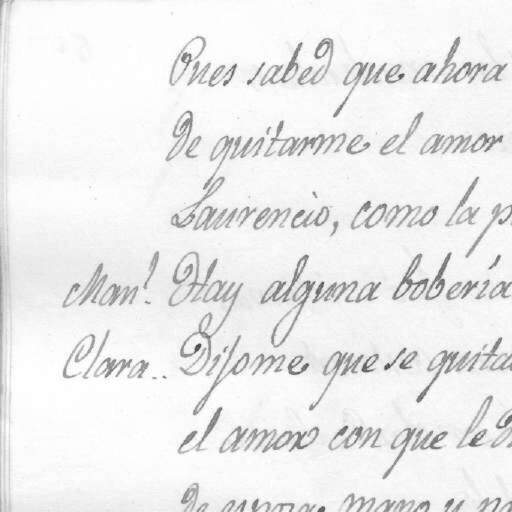 Pues sabed que ahora
de quitarme el amor
Laurencio, como la p
Man.l Hay alguna bobería
Clara.. Dijome que se quita
el amor con que le d
de mano y